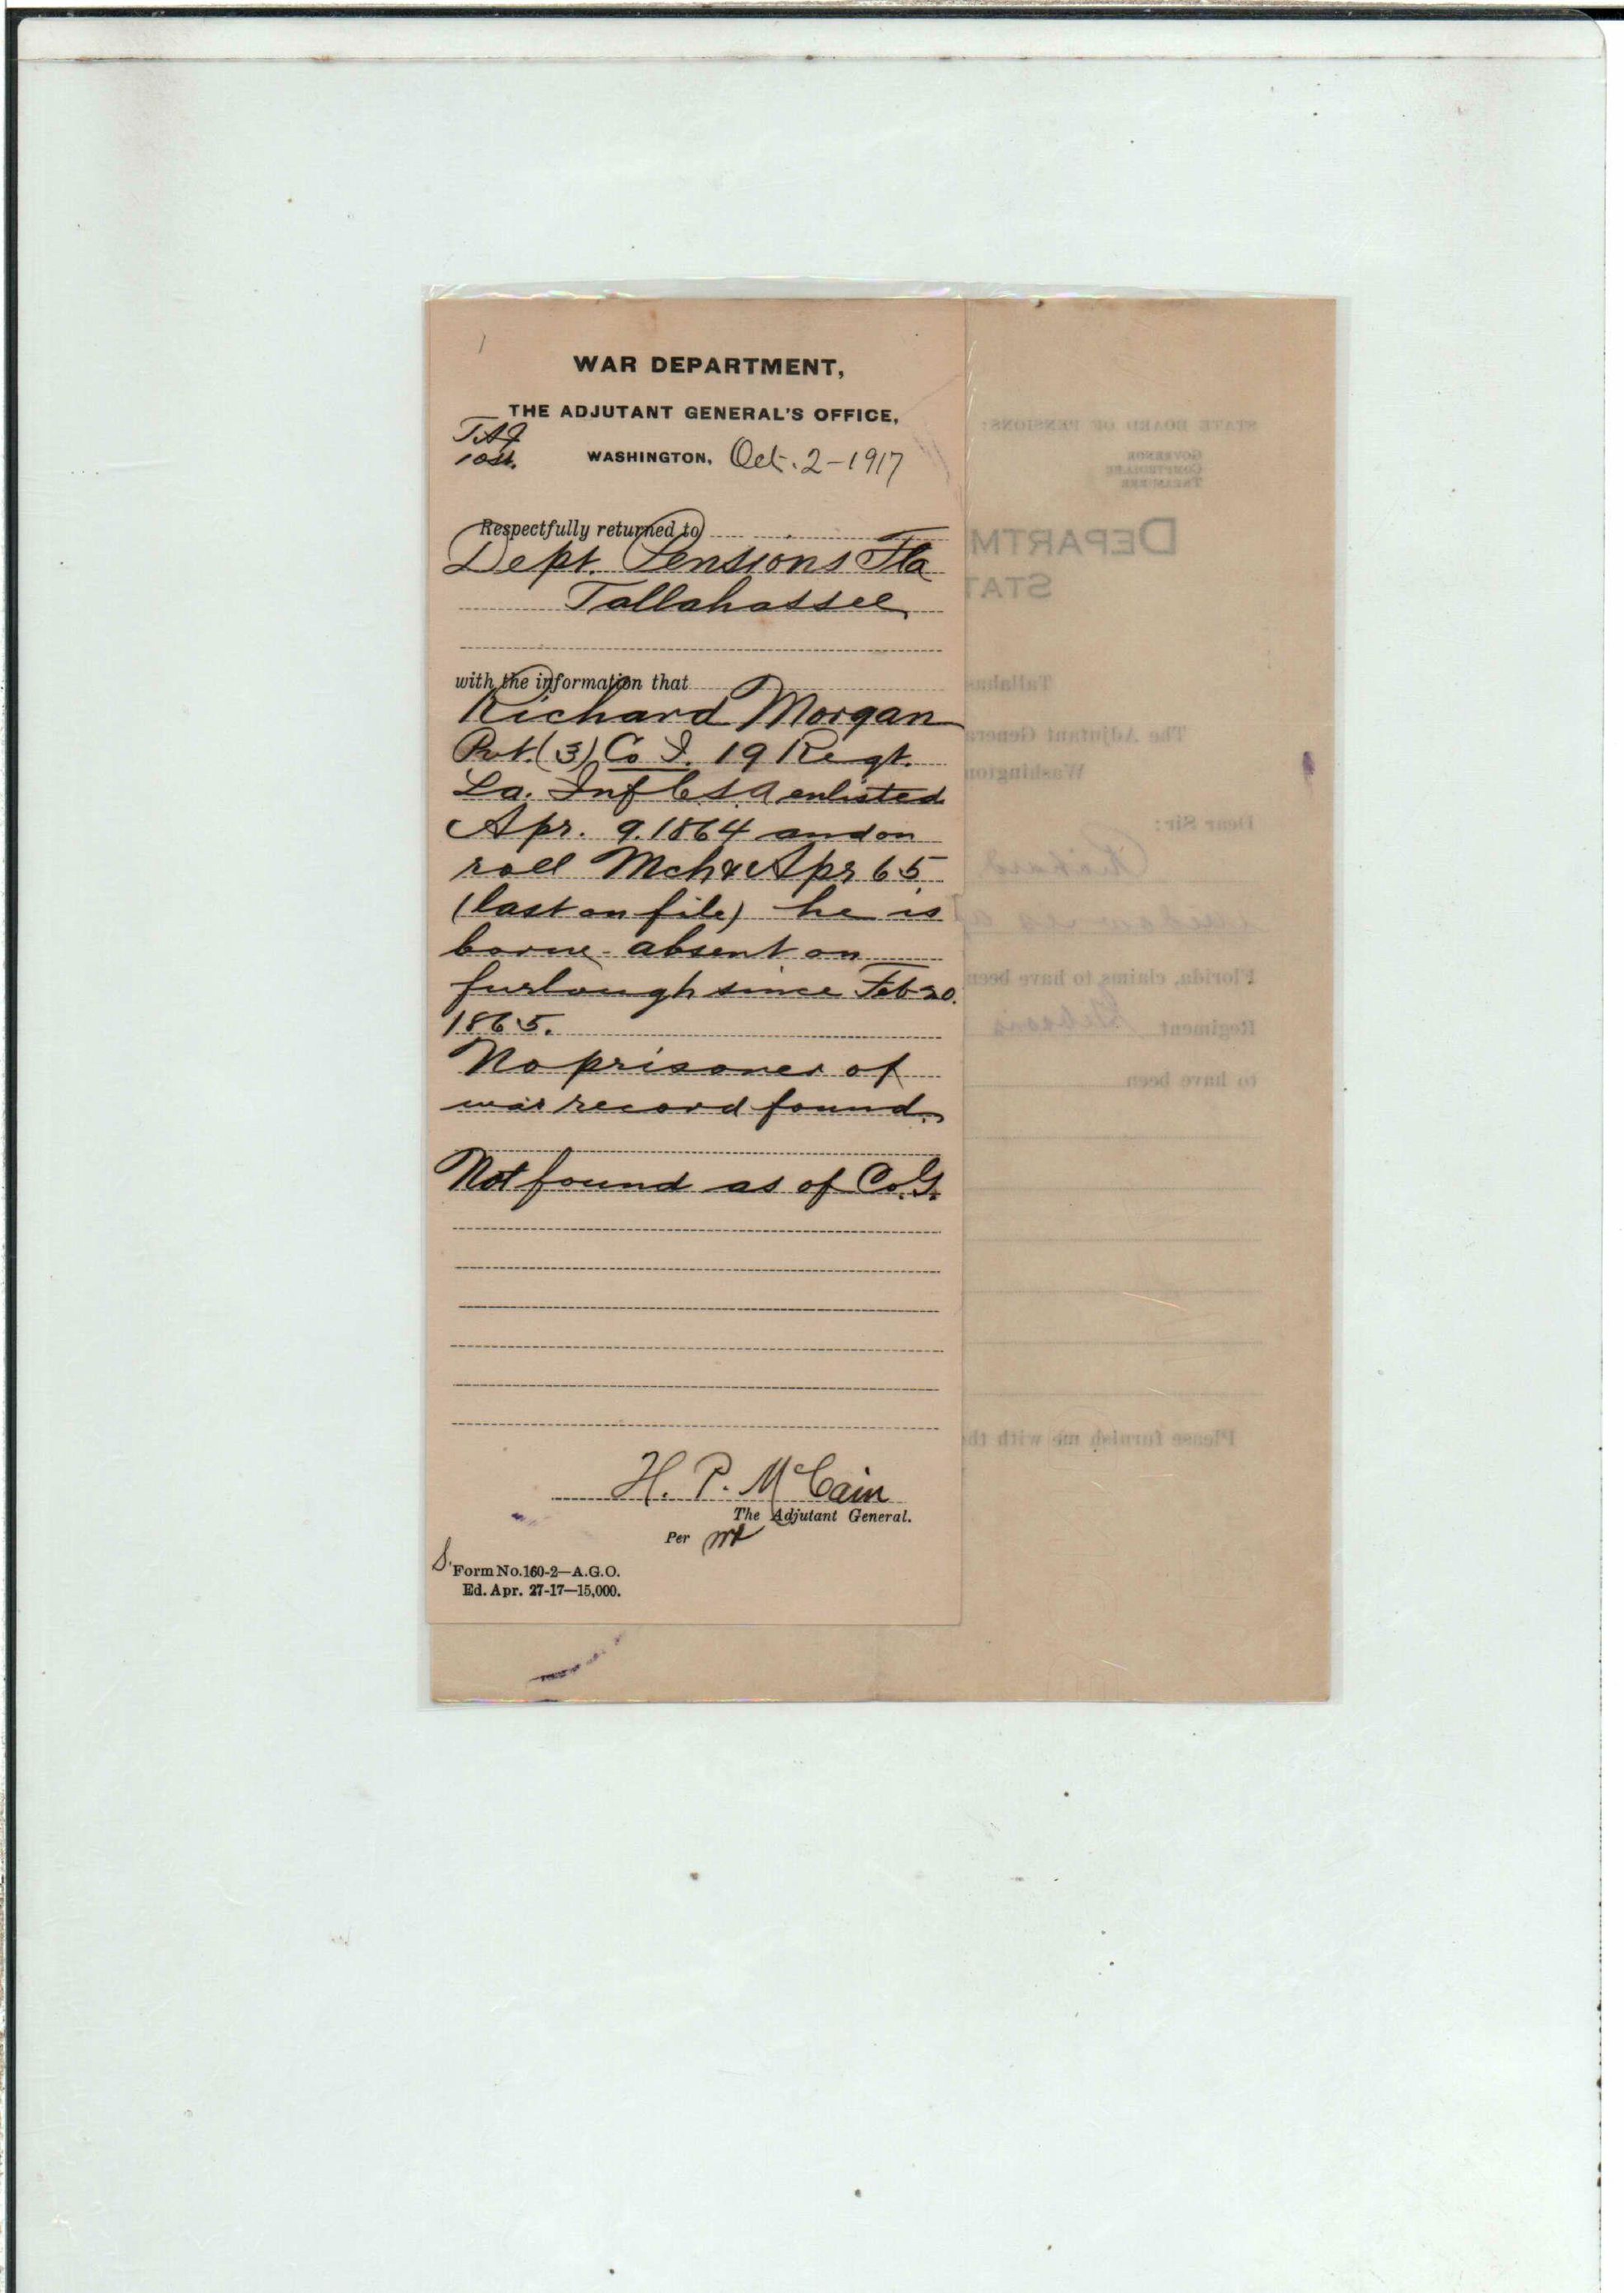 WAR DEPARTMENT,
THE ADJUTANT GENERAL'S OFFICE,
WASHINGTON, Oct. 2-1917
Respectfully returned to
Dept. Pensions Fla
Tallahassee
with the information that
Richard Morgan
Pvt. (3) Co I. 19 Regt.
La. Inf C.S.A enlisted
Apr. 9. 1864 and on
roll Mch & Apr 65
(last on file) he is
borne absent on
furlough since Feb 20.
1865.
No prisoner of
war record found.
Not found as of Co. G.
H. P. McCain
The Adjutant General.
Per
Form No. 160-2—A.G.O.
Ed. Apr. 27-17—15,000.
STATE BOARD OF PENSIONS:
GOVERNOR
COMPTROLLER
TREASURER
DEPARTM
STAT
Tallahas
The Adjutant Genera
Washington
Dear Sir:
Richard
Florida, claims to have been
Regiment Gibson's
to have been
Please furnish me with th